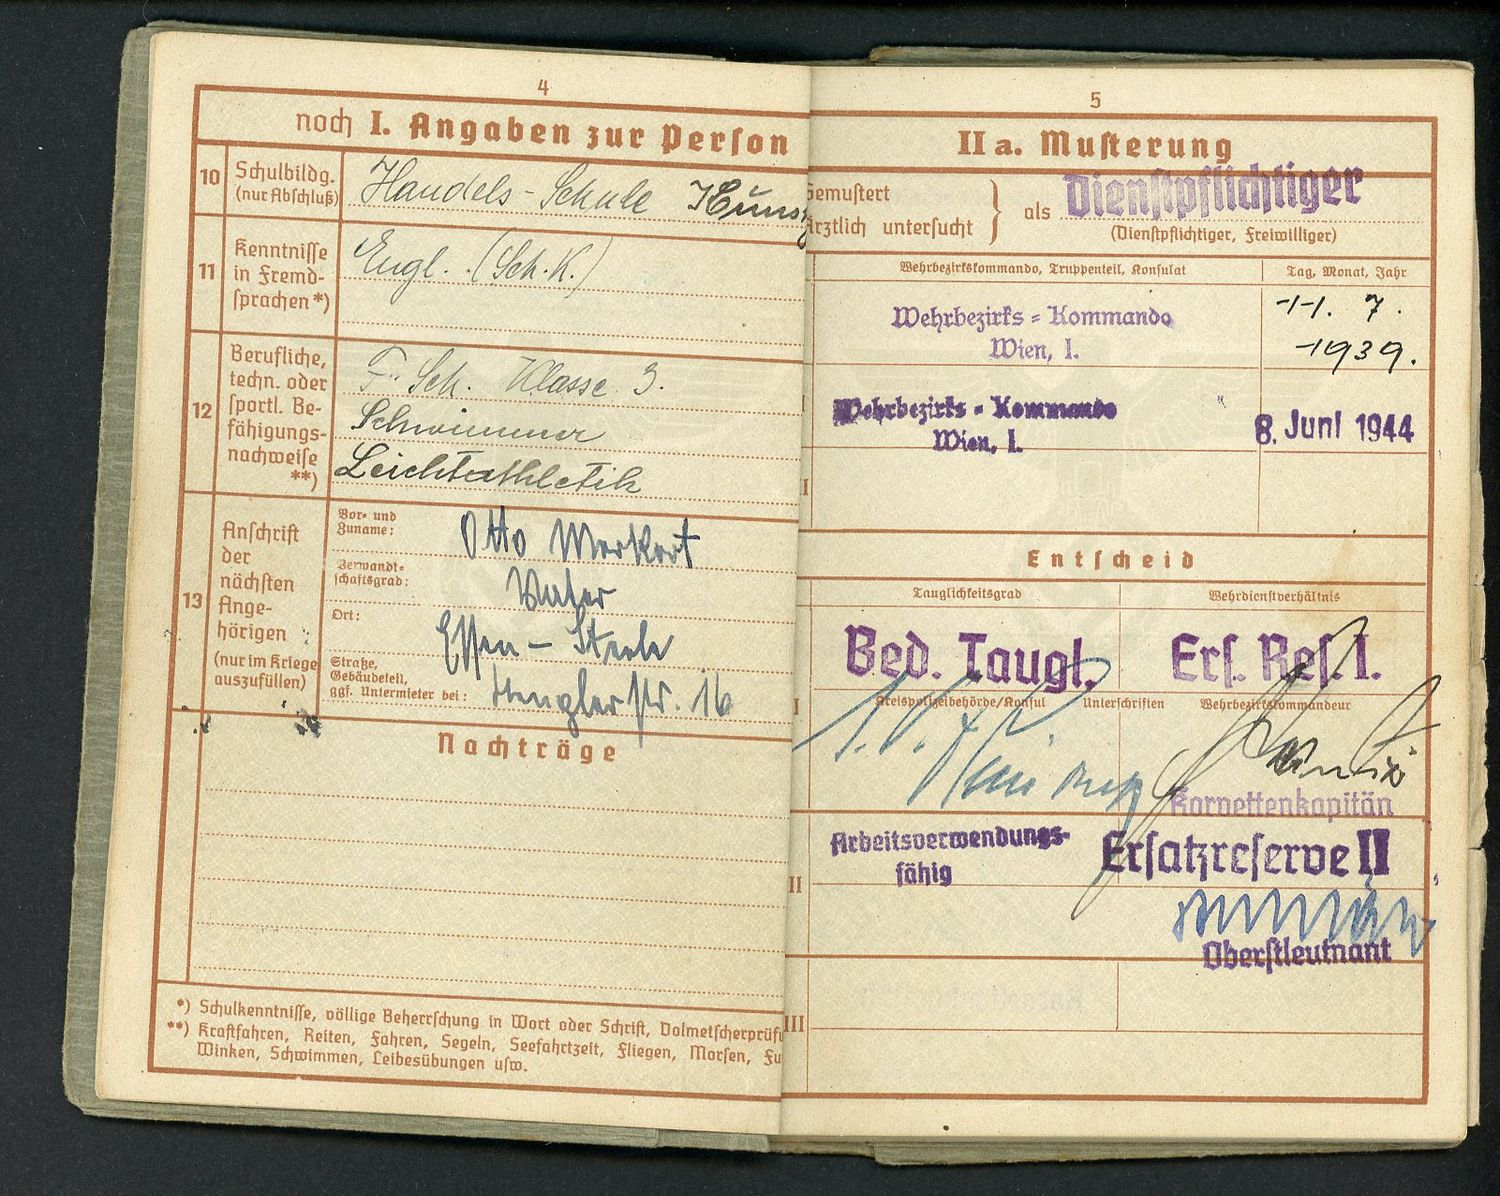 4
noch I. Angaben zur Person
10
Schulbildg.
(nur Abschluß)
Handels-Schule
11
Kenntnisse
in Fremd-
sprachen *)
Engl. (Sch.K.)
12
Berufliche,
techn. oder
sportl. Be-
fähigungs-
nachweise
**)
Sch. Klasse 3.
Schwimmer
Leichtathletik
13
Anschrift
der
nächsten
Ange-
hörigen
(nur im Kriege
auszufüllen)
Vor- und
Zuname:
Otto Merkert
Verwandt-
schaftsgrad:
Vater
Ort:
Essen - Steele
Straße,
Gebäudeteil,
ggf. Untermieter bei:
str. 16
Nachträge
*) Schulkenntnisse, völlige Beherrschung in Wort oder Schrift, Dolmetscherprüf
**) Kraftfahren, Reiten, Fahren, Segeln, Seefahrtzeit, Fliegen, Morsen, Fu
Winken, Schwimmen, Leibesübungen usw.
5
II a. Musterung
Gemustert
Ärztlich untersucht
als Dienstpflichtiger
(Dienstpflichtiger, Freiwilliger)
Wehrbezirkskommando, Truppenteil, Konsulat
Tag, Monat, Jahr
Wehrbezirks = Kommando
Wien, I.
11. 7.
1939.
Wehrbezirks = Kommando
Wien, I.
8. Juni 1944
Entscheid
Tauglichkeitsgrad
Wehrdienstverhältnis
Bed. Taugl.
Ers. Res. I.
I
Kreispolizeibehörde/Konsul
Unterschriften
Wehrbezirkskommandeur
Korvettenkapitän
II
Arbeitsverwendungs-
fähig
Ersatzreserve II
Oberstleutnant
III